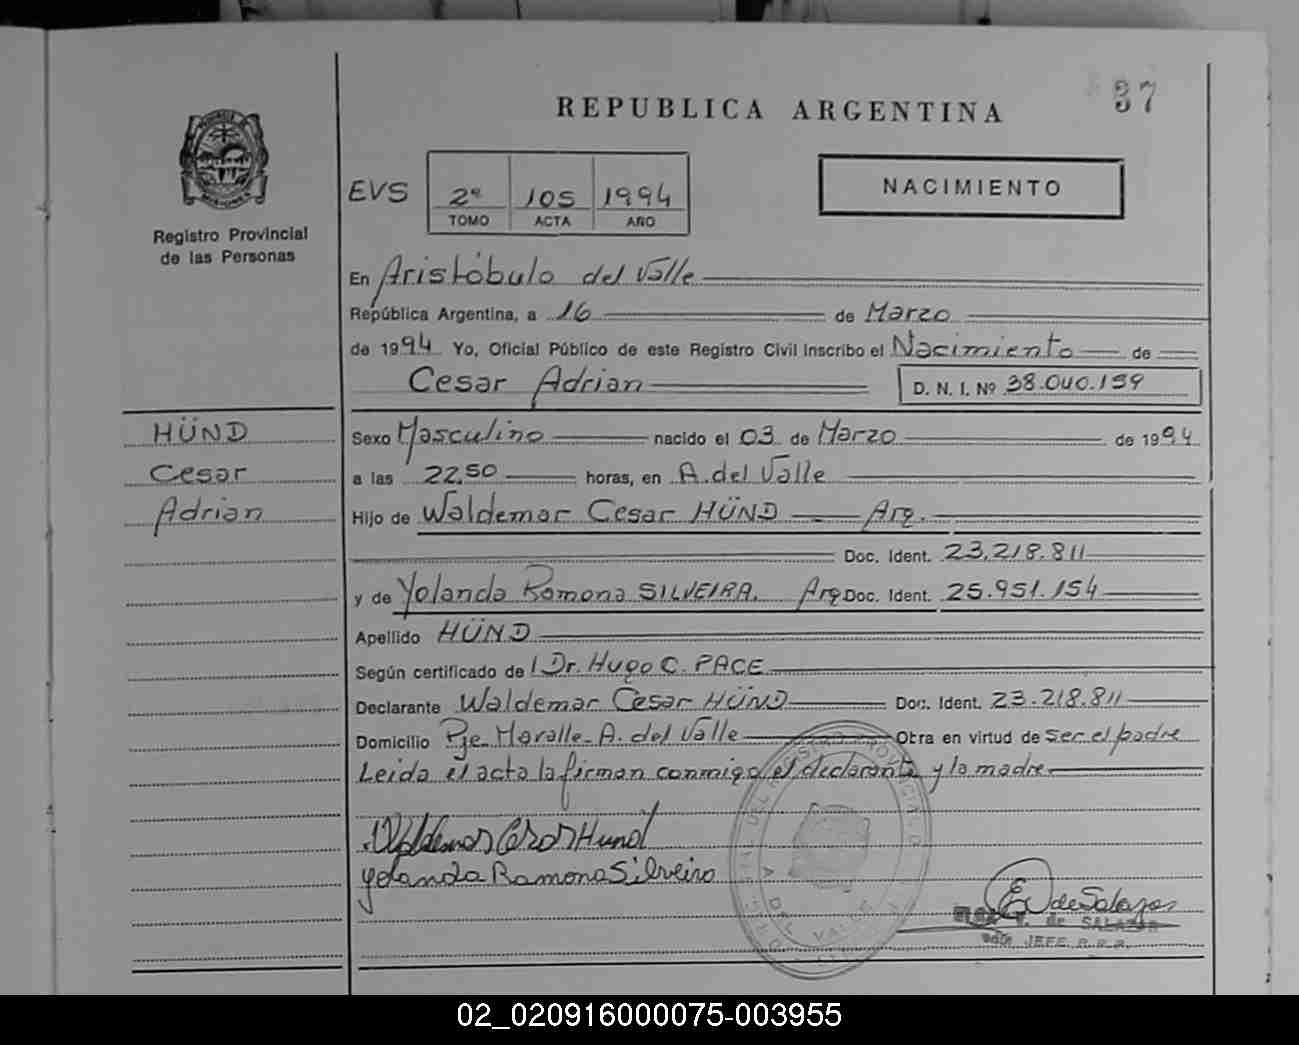 37
REPUBLICA ARGENTINA
NACIMIENTO
EVS 2º 105 1994
TOMO ACTA AÑO
Registro Provincial
de las Personas
En Aristóbulo del Valle
República Argentina, a 16 de Marzo
de 1994 Yo, Oficial Público de este Registro Civil Inscribo el Nacimiento de
Cesar Adrian D. N. I. Nº 38.040.159
HÜND
Cesar
Adrian
Sexo Masculino nacido el 03 de Marzo de 1994
a las 22.50 horas, en A. del Valle
Hijo de Waldemar Cesar HÜND Arg.
Doc. Ident. 23.218.811
y de Yolanda Ramona SILVEIRA. Arg Doc. Ident. 25.951.154
Apellido HÜND
Según certificado de l Dr. Hugo C. PACE
Declarante Waldemar Cesar HÜND Doc. Ident. 23.218.811
Domicilio Pje. Maralle - A. del Valle Obra en virtud de Ser el padre
Leida el acta la firman conmigo el declarante y la madre
Waldemar Cesar Hund
Yolanda Ramona Silveira
A. DEL VALLE
E V de Salazar
ELSA V. de SALAZAR
JEFE R.P.P.
02_020916000075-003955